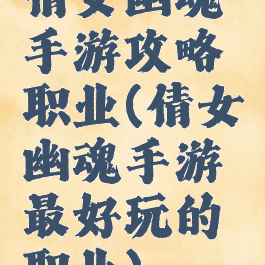 倩女幽魂
手游攻略
职业(倩女
幽魂手游
最好玩的
职业)